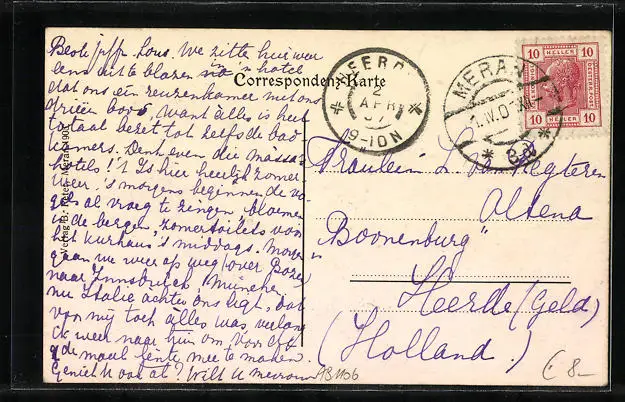 Beste juffr. Lous. We zitte hier weer
eens uit te blazen in 'n hotel
dat ons een reuzenkamer met ons
drieën bood, want alles is hier
totaal bezet tot zelfs de bad
kamers. Denk even die massa
hotels! 't Is hier heerlijk zomer
weer. 's morgens beginnen de vo-
gels al vroeg te zingen, bloemen
in de bergen, zomertoilets voor
het Kurhaus 's middags. Morgen
gaan we weer op weg (over Bozen)
naar Innsbruck, München,
nu Italie achter ons ligt, dat
voor mij toch alles was, verlang
ik weer naar huis om voor
de maal lente mee te maken.
Geniet U ook al? Wilt U mevrouw
Correspondenz-Karte
HEERDE
2
APR
07
9-10N
MERAN
1.IV.07
10 HELLER 10
10 HELLER 10
Verlag B. Peter, Meran 1903
Fräulein L. van Regteren
Altena
"Boonenburg"
Heerde (Geld)
(Holland.)
AB1106
€ 8-